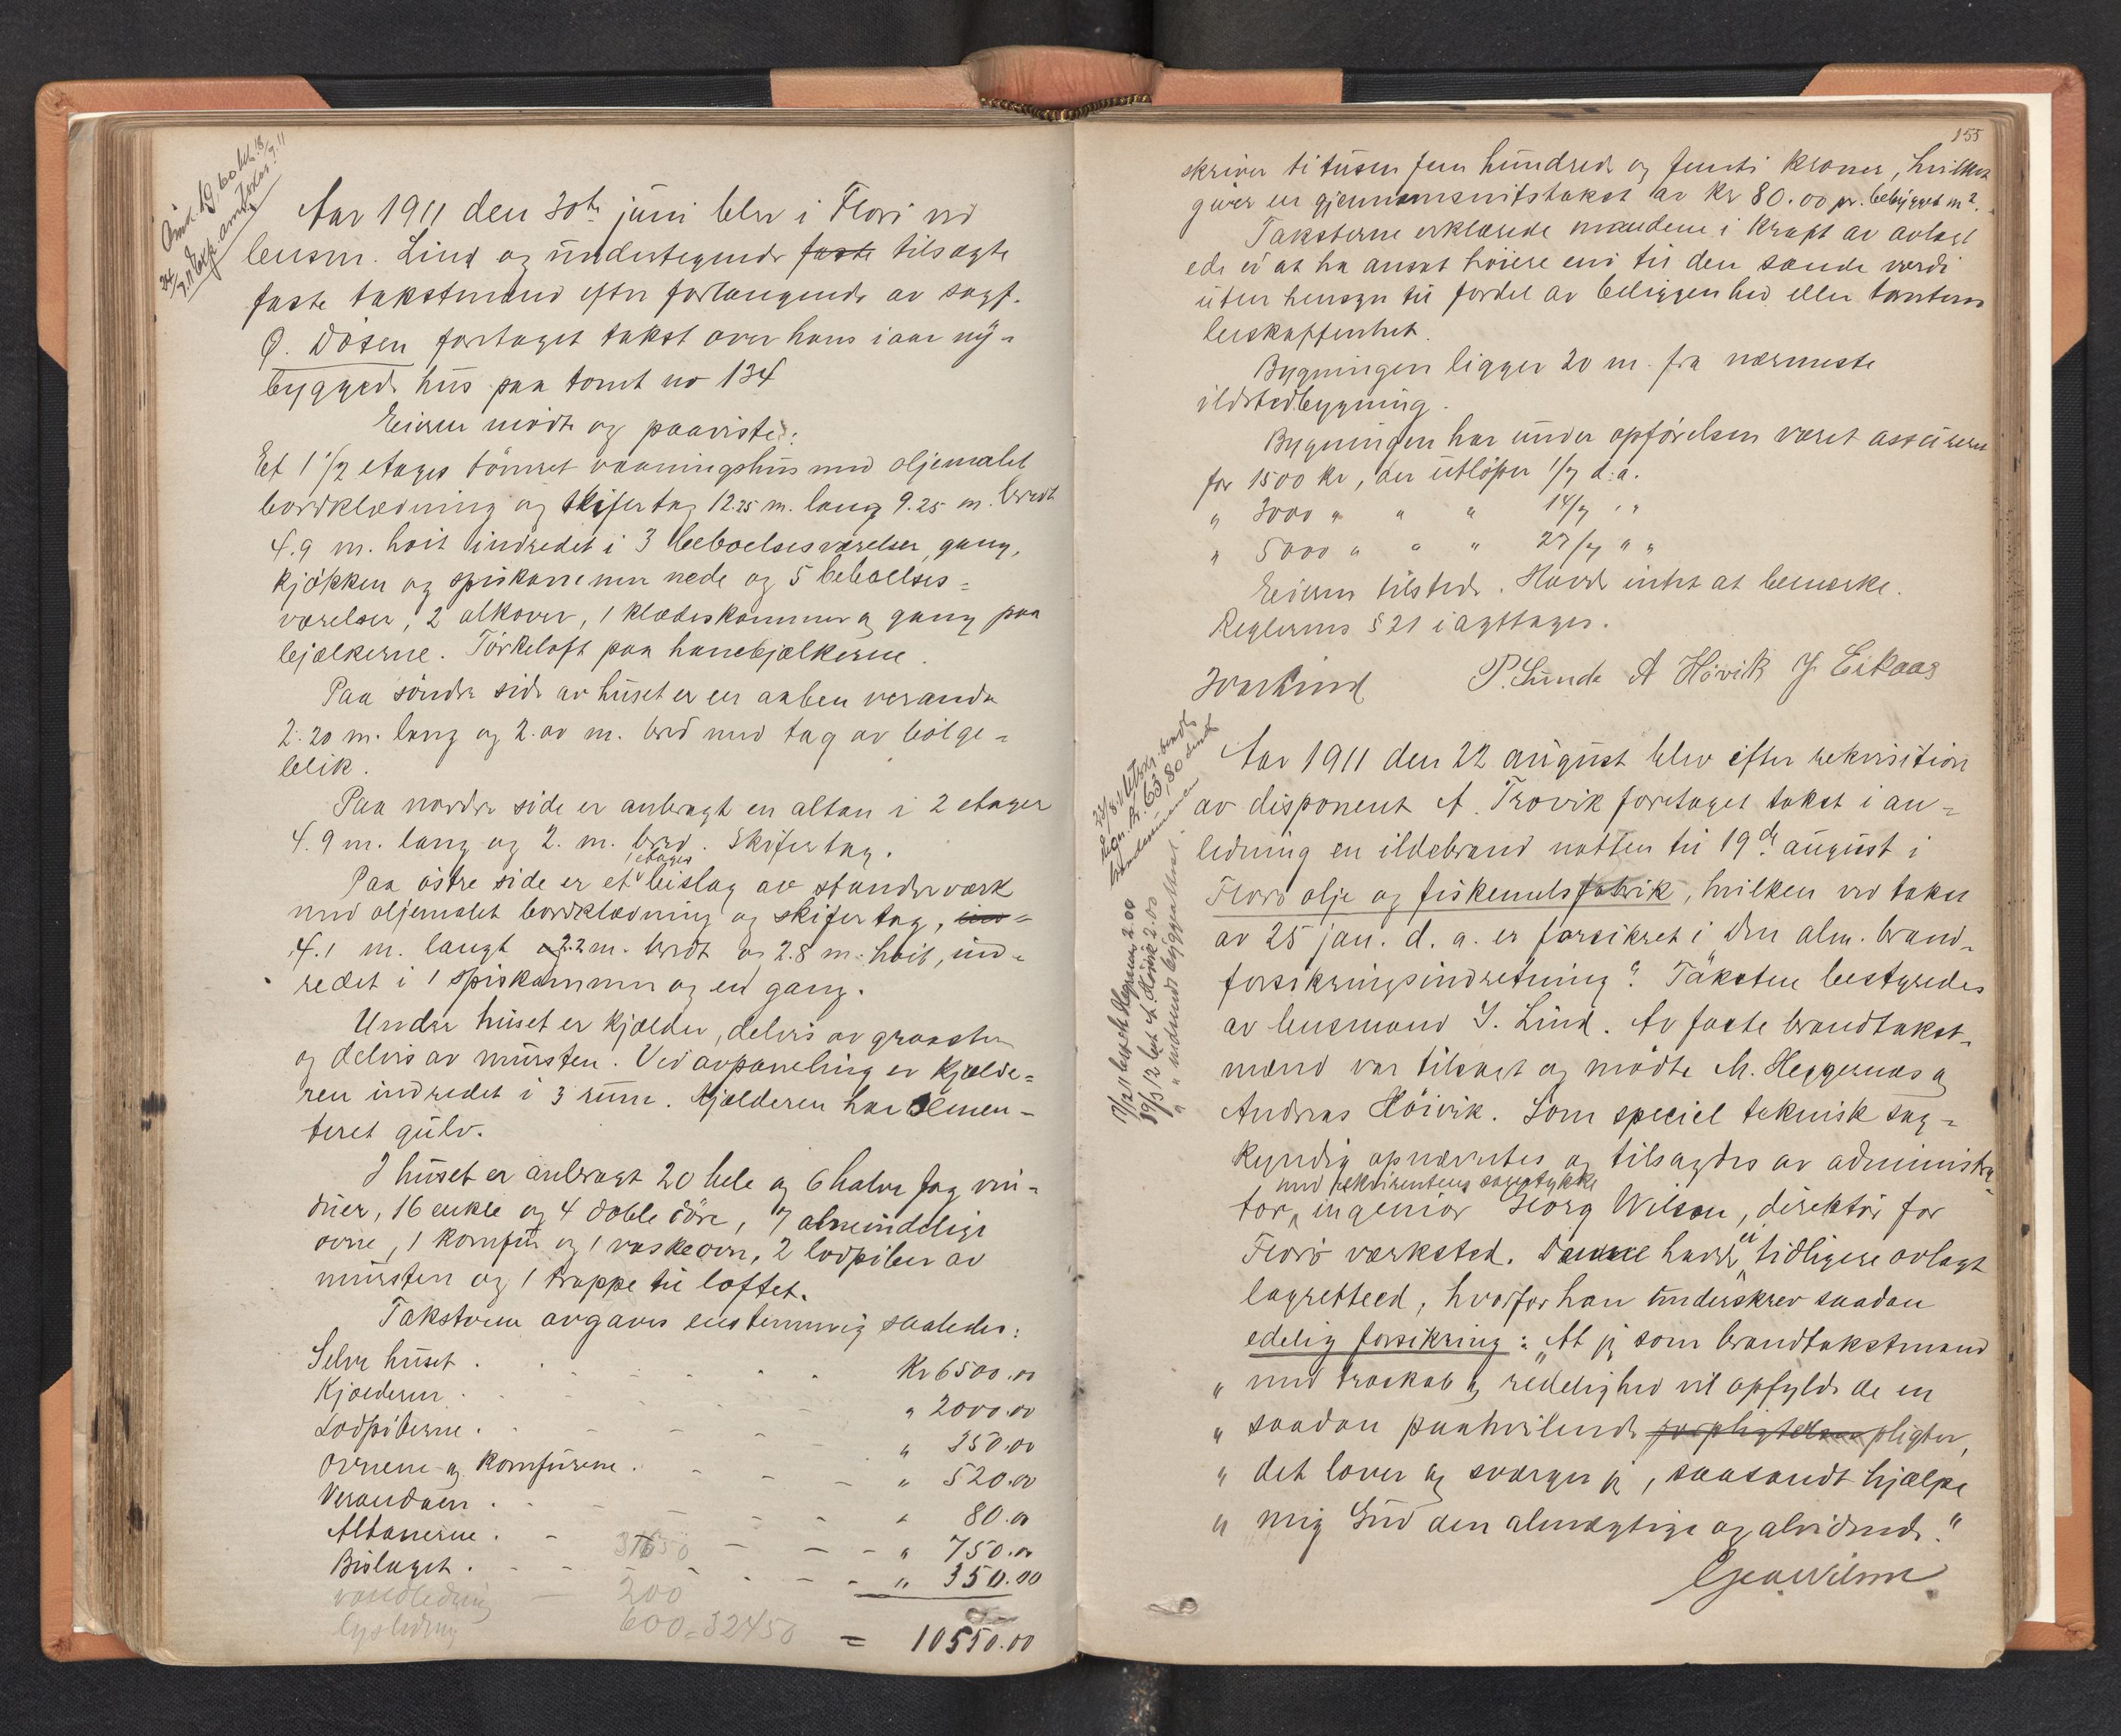 Aar 1911 den 30te juni blev i Florö ved
lensm. Lind og undertegnede faste tilsagte
faste takstmænd efter forlangende av sagf.
O. Døsen foretaget takst over hans iaar ny-
byggede hus paa tomt no 134
Eieren mödte og paaviste:
Et 1 1/2 etages tömret vaaningshus med oljemalet
bordklædning og skifertag 12.25 m. lang 9.25 m. bredt
4.9 m. hoit indredet i 3 beboelsesværelser, gang,
kjøkken og spiskammer nede og 5 beboelses-
værelser, 2 alkover, 1 klædeskammer og gang paa
bjælkerne. Törkeloft paa hanebjælkerne.
Paa söndre side av huset er en aaben veranda
2.20 m. lang og 2.00 m. bred med tag av bölge-
blik.
Paa nordre side er anbragt en altan i 2 etager
4.9 m. lang og 2. m. bred. Skifertag.
1 etages
Paa östre side er et bislag av stenderværk
med oljemalet bordklædning og skifertag, ind-
4.1 m. langt og 2.2 m. bredt og 2.8 m. hoit, ind-
redet i 1 spiskammer og en gang.
Under huset er kjælder, delvis av graasten
og delvis av mursten. Ved avpaneling er kjælde-
ren indredet i 3 rum. Kjælderen har semen-
teret gulv.
I huset er anbragt 20 hele og 6 halve fag vin-
duer, 16 enkle og 4 doble döre, 7 almindelige
ovne, 1 komfur og 1 vaskeovn, 2 lodpiber av
mursten og 1 trappe til loftet.
Taksterne avgaves enstemmig saaledes:
Selve huset . Kr 6500.00
Kjælderen . " 2000.00
Lodpiberne . " 350.00
Ovnene og komfurene . " 520.00
Verandaen . " 80.00
Altanerne . " 750.00
Bislaget . " 350.00
vandledning 200
lysledning 600 = 32450
= 10550.00
155
skriver titusen fem hundrede og femti kroner, hvilket
giver en gjennemsnitstakst av kr 80.00 pr. bebygget m2.
Taksterne erklærede mændene i kraft av avlagt
ed ei at ha ansat höiere end til den sande værdi
uten hensyn til fordel av beliggenhed eller tomtens
beskaffenhet.
Bygningen ligger 20 m. fra nærmeste
ildstedbygning.
Bygningen har under opförelsen været assureret
for 1500 kr, der utlöper 1/7 d.a.
" 3000 " " " 14/7 " "
" 5000 " " " 27/7 " "
Eieren tilstede. Havde intet at bemerke.
Reglernes § 21 iagttages.
P. Sunde A Hövik J Eikaas
Aar 1911 den 22 august blev efter rekvisition
av disponent A. Trovik foretaget takst i an-
ledning en ildebrand natten til 19de august i
Florö olje og fiskemelsfabrik, hvilken ved takst
av 25 jan. d. a. er forsikret i "Den alm. brand-
forsikringsindretning". Taksten bestyredes
av lensmand I. Lind. Av faste brandtakst-
mænd var tilsagt og mödte M. Heggenæs og
Andreas Höivik. Som speciel teknisk sag-
kyndig opnævntes og tilsagdes av administra-
med rekvirentens samtykke
tor, ingeniör Georg Wilson, direktör for
Florö værksted. Denne havde ei tidligere avlagt
lagretteed, hvorfor han underskrev saadan
edelig forsikring: "At jeg som brandtakstmand
" med troskab og redelighed vil opfylde de en
" saadan paahvilende forpligtelser pligter,
" det lover og sværger jeg, saasandt hjælpe
" mig Gud den almægtige og alvidende."
Geo Wilson